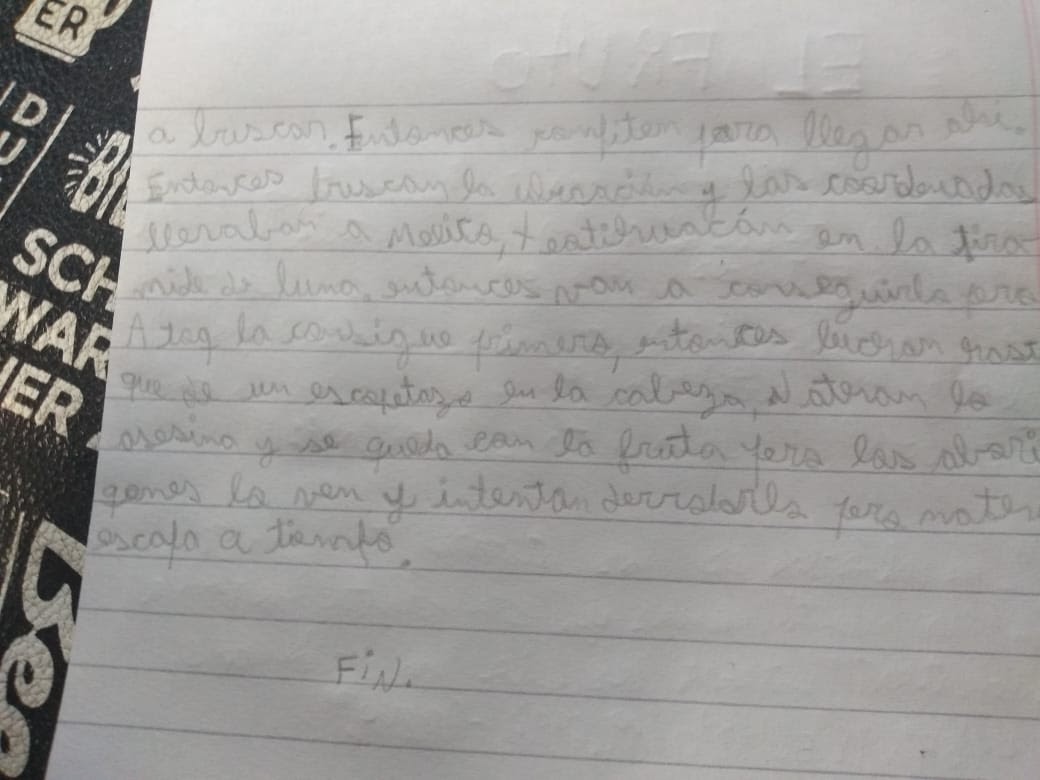 ER
D
U
SCH
WAR
IER
EL FRUTO
a buscar. Entonces compiten para llegar ahi.
Entonces buscan la ubicación y las coordenadas
llevaban a Mexico, teotihuacán en la pira
mide de luna, entonces van a conseguirla pero
A tag la consigue primero, entonces luchan hast
que de un escopetazo en la cabeza, lo
asesina y se queda con la fruta pero los abori
genes lo ven y intentan derribarlo pero
escapa a tiempo.
FiN.